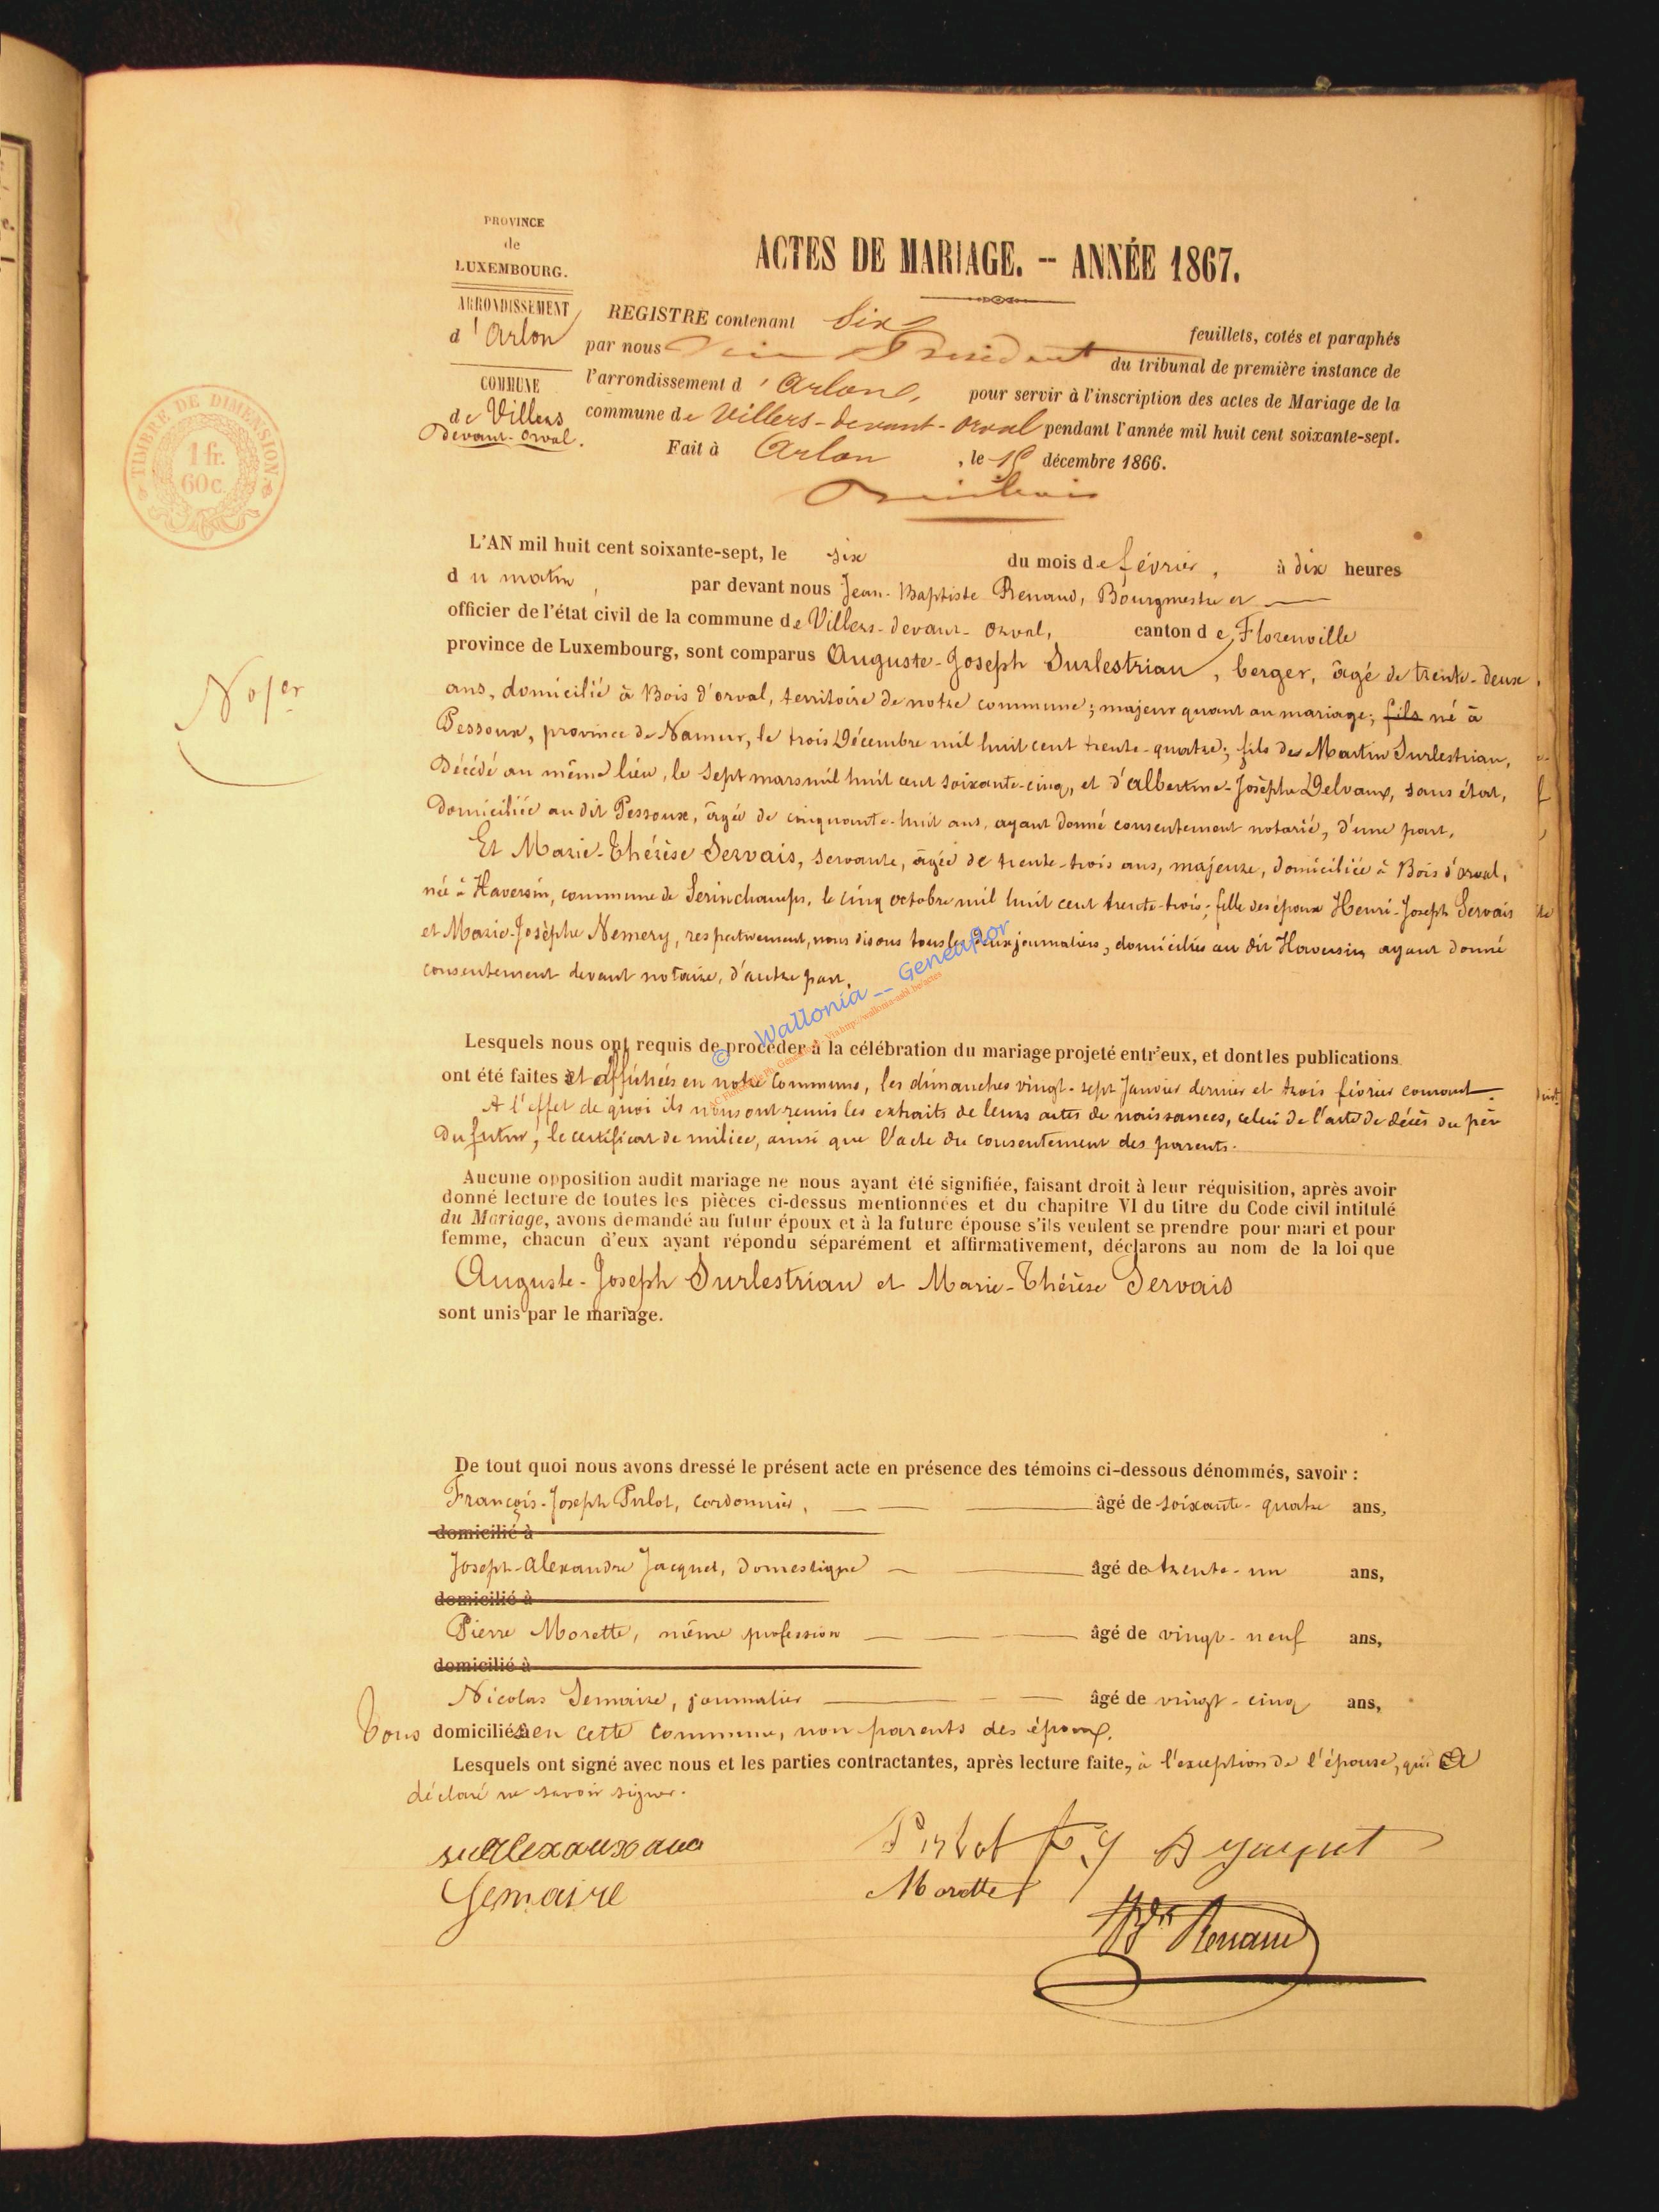 PROVINCE
de
LUXEMBOURG.
ARRONDISSEMENT
d'Arlon
COMMUNE
de Villers
devant-Orval.
TIMBRE DE DIMENSION
1 fr.
60 c.
ACTES DE MARIAGE. -- ANNÉE 1867.
REGISTRE contenant Six feuillets, cotés et paraphés
par nous Vice Président du tribunal de première instance de
l'arrondissement d'Arlon, pour servir à l'inscription des actes de Mariage de la
commune de Villers-devant-Orval pendant l'année mil huit cent soixante-sept.
Fait à Arlon, le 15 décembre 1866.
No 1er
L'AN mil huit cent soixante-sept, le six du mois de février, à dix heures
du matin, par devant nous Jean-Baptiste Renaud, Bourgmestre et
officier de l'état civil de la commune de Villers-devant-Orval, canton de Florenville
province de Luxembourg, sont comparus Auguste-Joseph Surlestriau, berger, âgé de trente-deux
ans, domicilié à Bois d'orval, territoire de notre commune; majeur quant au mariage; fils né à
Pessoux, province de Namur, le trois Décembre mil huit cent trente-quatre; fils de Martin Surlestriau,
Décédé au même lieu, le sept mars mil huit cent soixante-cinq, et d'Albertine-Josèphe Delvaux, sans état,
domiciliée au dit Pessoux, âgée de cinquante-huit ans, ayant donné consentement notarié, d'une part,
Et Marie-Thérèse Servais, servante, âgée de trente-trois ans, majeure, domiciliée à Bois d'orval,
née à Haversin, commune de Serinchamps, le cinq octobre mil huit cent trente-trois; fille des époux Henri-Joseph Servais
et Marie-Josèphe Nemery, respectivement, nous disons tous les deux journaliers, domiciliés au dit Haversin, ayant donné
consentement devant notaire, d'autre part.
© Wallonia -- Geneaflor
Lesquels nous ont requis de procéder à la célébration du mariage projeté entr'eux, et dont les publications
ont été faites et affichées en notre Commune, les dimanches vingt-sept Janvier dernier et trois février courant.
A l'effet de quoi ils nous ont remis les extraits de leurs actes de naissances, celui de l'acte de décès du père
du futur, le certificat de milice, ainsi que l'acte du consentement des parents.
Aucune opposition audit mariage ne nous ayant été signifiée, faisant droit à leur réquisition, après avoir
donné lecture de toutes les pièces ci-dessus mentionnées et du chapitre VI du titre du Code civil intitulé
du Mariage, avons demandé au futur époux et à la future épouse s'ils veulent se prendre pour mari et pour
femme, chacun d'eux ayant répondu séparément et affirmativement, déclarons au nom de la loi que
Auguste-Joseph Surlestriau et Marie-Thérèse Servais
sont unis par le mariage.
De tout quoi nous avons dressé le présent acte en présence des témoins ci-dessous dénommés, savoir :
François-Joseph Pirlot, cordonnier, âgé de soixante-quatre ans,
domicilié à
Joseph-Alexandre Jacquet, domestique âgé de trente-un ans,
domicilié à
Pierre Morette, même profession âgé de vingt-neuf ans,
domicilié à
Nicolas Lemaire, journalier âgé de vingt-cinq ans,
Tous domiciliés en cette commune, non parents des époux.
Lesquels ont signé avec nous et les parties contractantes, après lecture faite, à l'exception de l'épouse, qui a
déclaré ne savoir signer.
Pirlot f j A Jacquet
Lemaire Morette
JBte Renaud